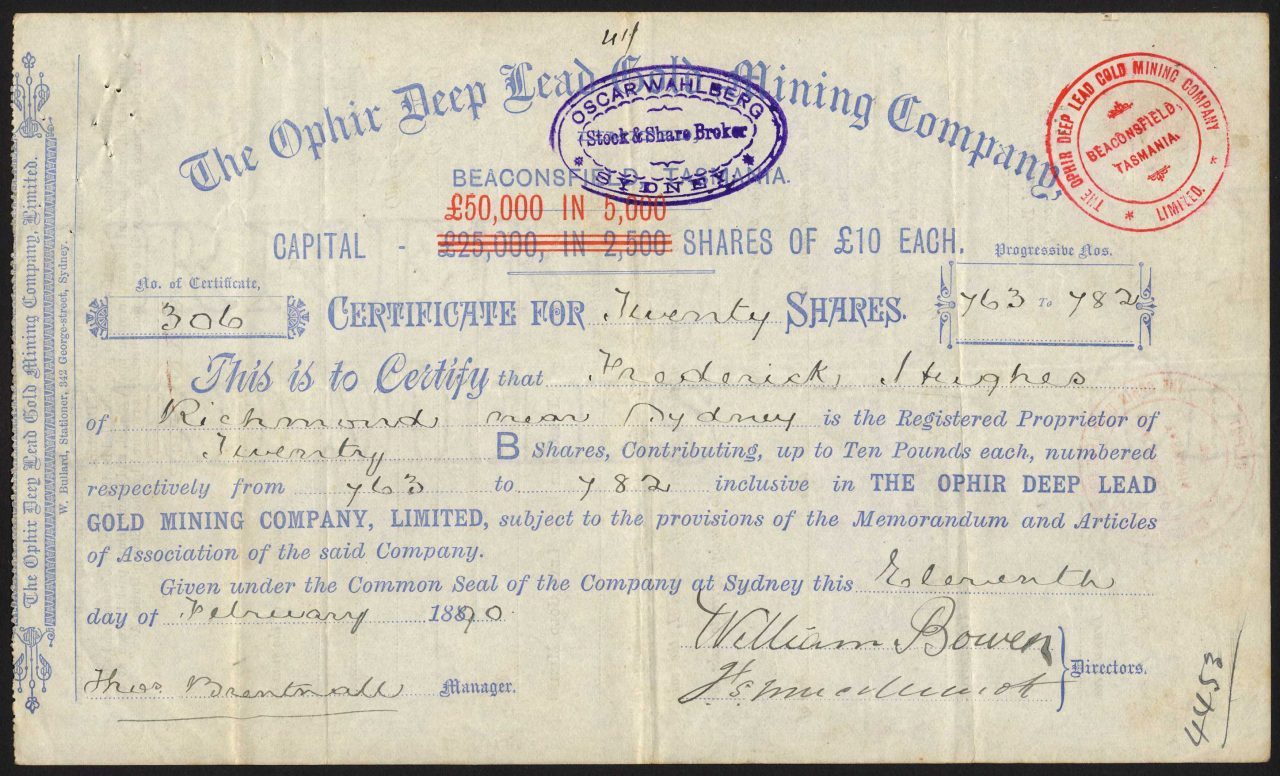 The Ophir Deep Lead Gold Mining Company, Limited.
W. Bullard, Stationer, 342 George-street, Sydney.
The Ophir Deep Lead Gold Mining Company,
OSCAR WAHLBERG
Stock & Share Broker
SYDNEY
THE OPHIR DEEP LEAD GOLD MINING COMPANY
LIMIZED.
BEACONSFIELD,
TASMANIA.
BEACONSFIELD, TASMANIA.
£50,000 IN 5,000
CAPITAL - £25,000, IN 2,500 SHARES OF £10 EACH.
No. of Certificate,
306
CERTIFICATE FOR Twenty SHARES.
Progressive Nos.
763 To 782
This is to Certify that Frederick Hughes
of Richmond near Sydney is the Registered Proprietor of
Twenty B Shares, Contributing, up to Ten Pounds each, numbered
respectively from 763 to 782 inclusive in THE OPHIR DEEP LEAD
GOLD MINING COMPANY, LIMITED, subject to the provisions of the Memorandum and Articles
of Association of the said Company.
Given under the Common Seal of the Company at Sydney this Eleventh
day of February 1890
William Bowen
Directors.
Thos Brentnall Manager.
4453